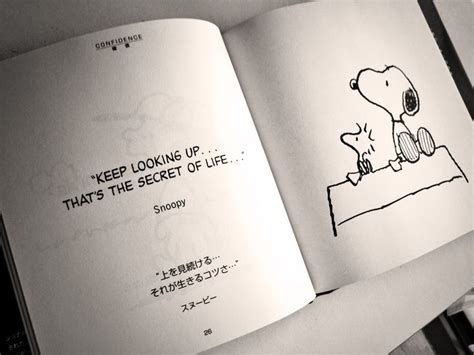 CONFIDENCE
"KEEP LOOKING UP...
THAT'S THE SECRET OF LIFE..."
Snoopy
"上を見続ける…
それが生きるコツさ…"
スヌーピー
26